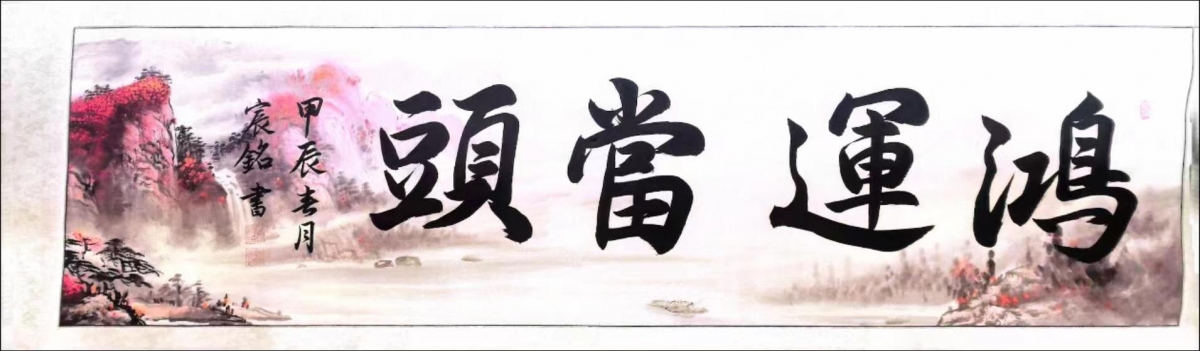 鴻運當頭
甲辰春月
宸銘書